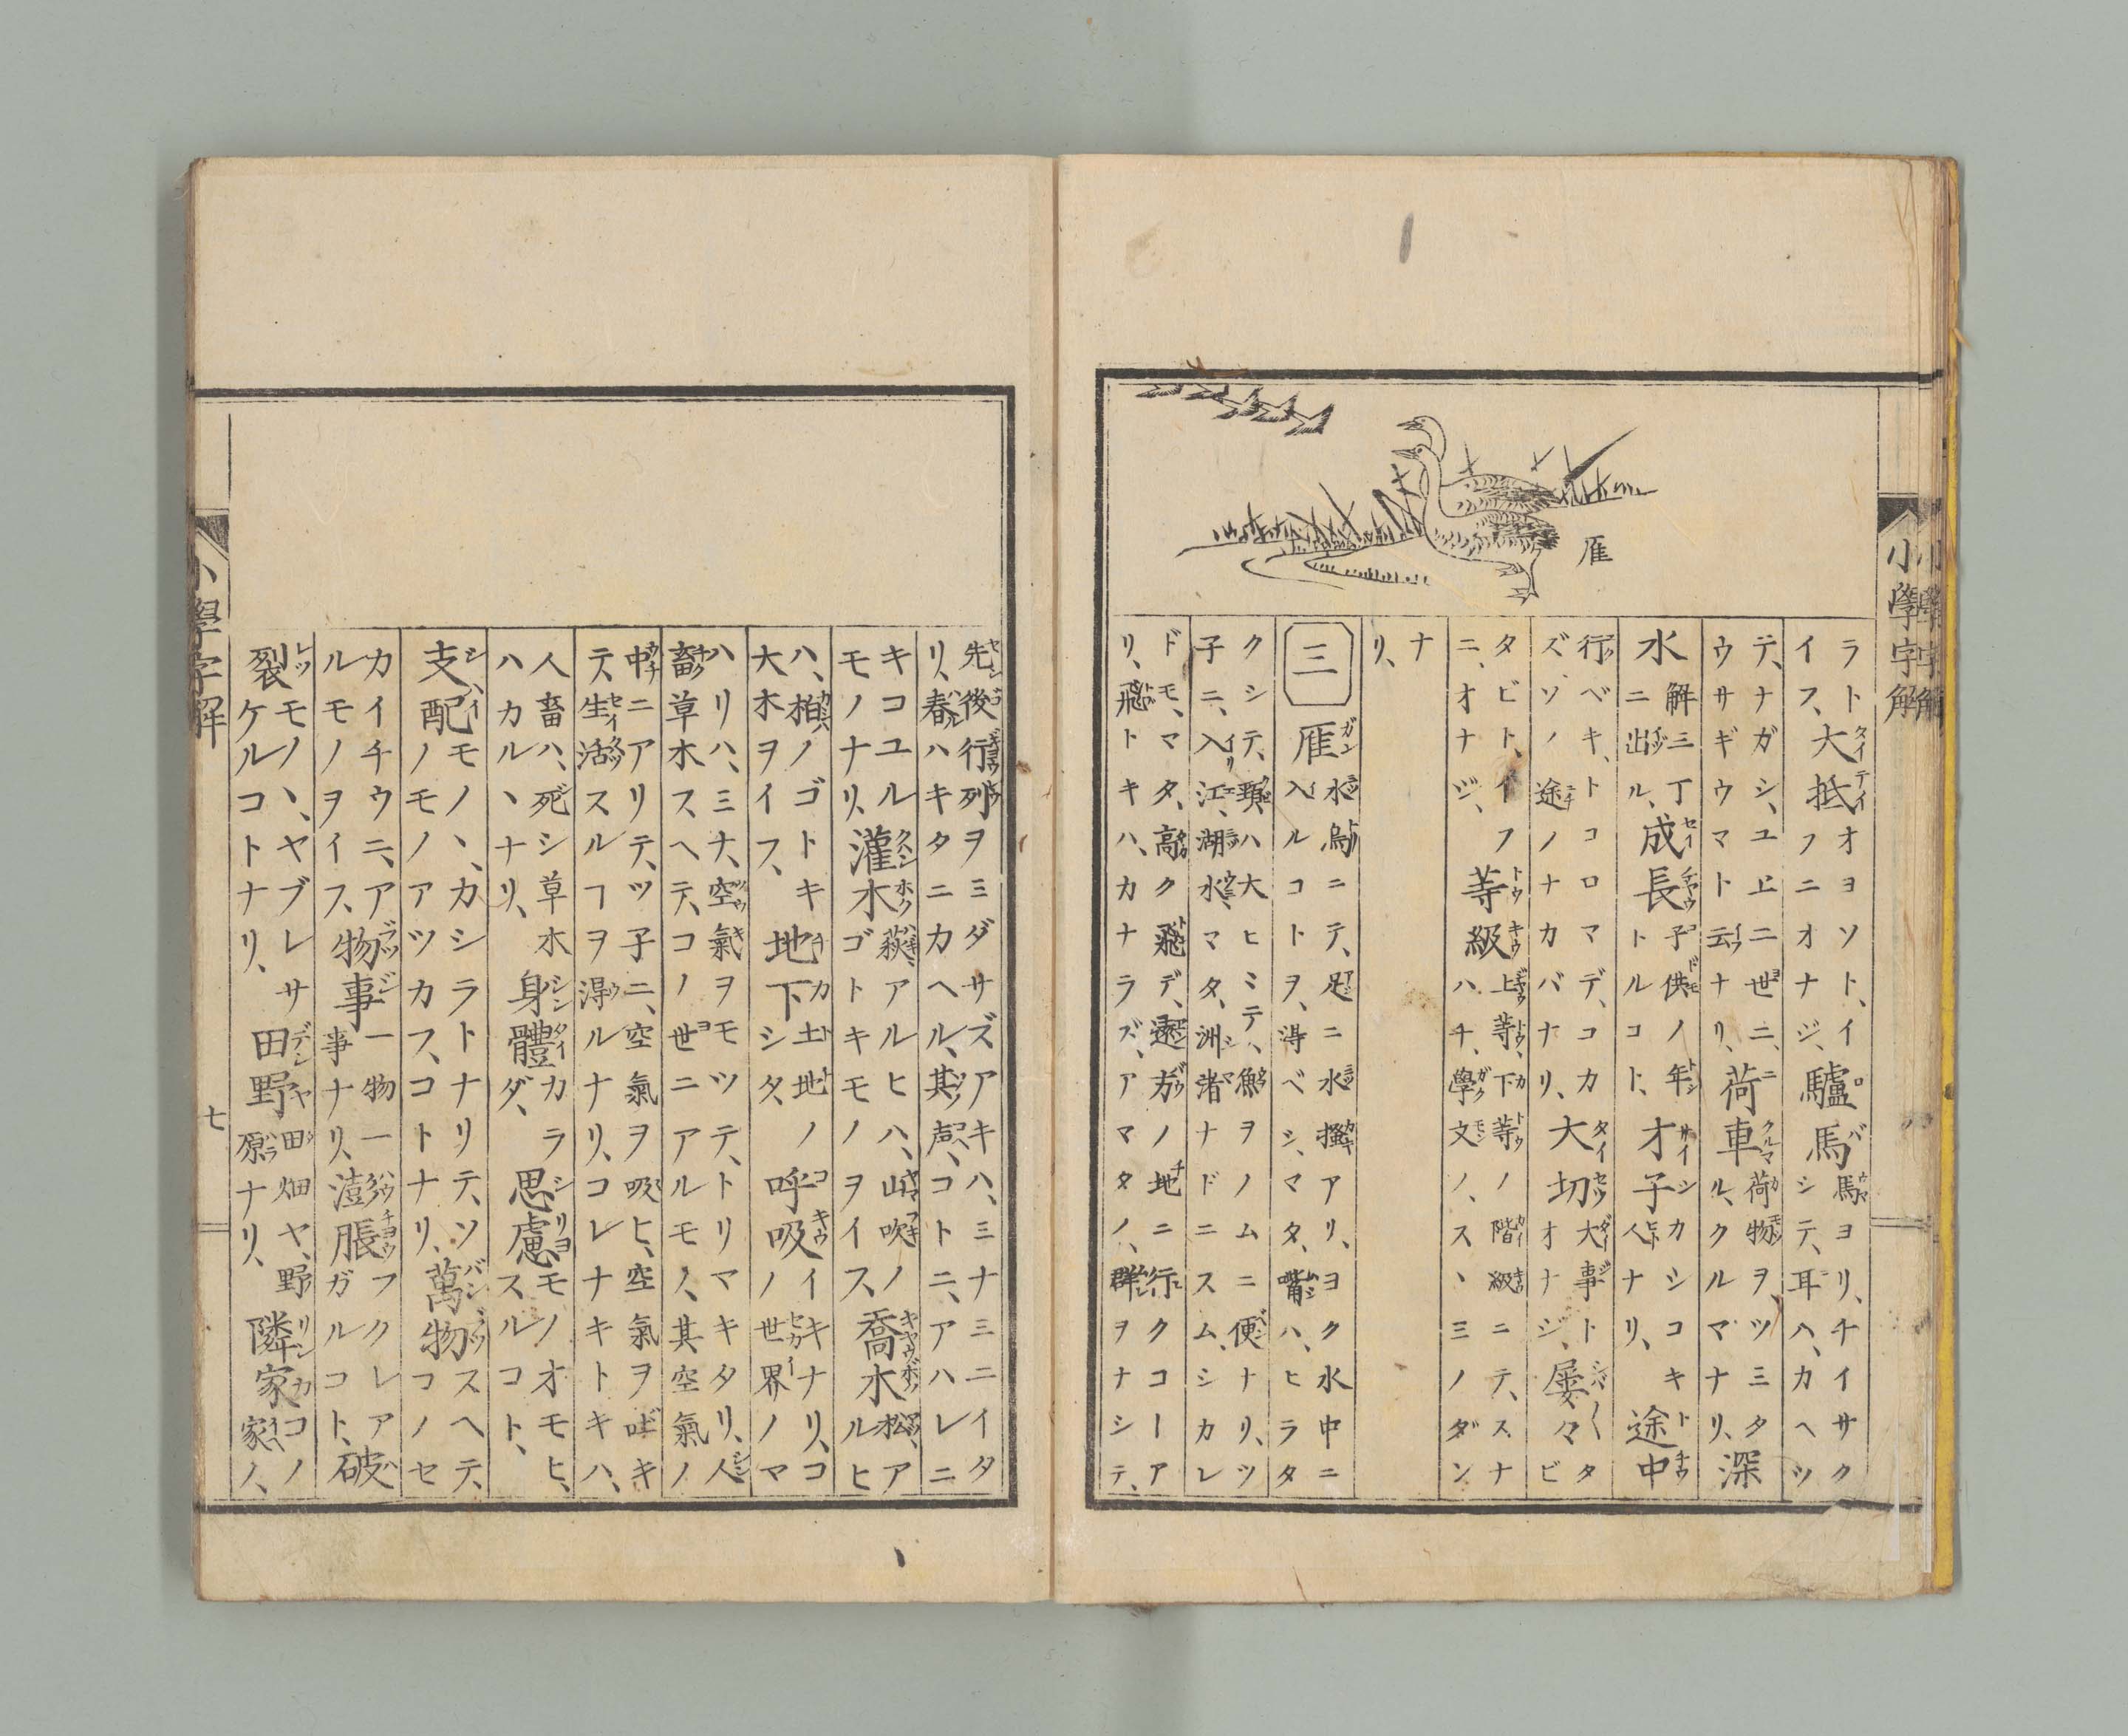 小學字解
雁
ラトイフ、大抵オヨソト、イフニオナジ、驢馬馬ヨリ、チイサクシテ、耳ハ、カヘツ
テ、ナガシ、ユヱニ世ニ、ウサギウマト云ナリ、荷車荷物ヲ、ツミタル、クルマナリ、深
水解三丁ニ出ル、成長子供ノ年トルコト、才子カシコキ人ナリ、途中
行ベキ、トコロマデ、コカズソノ途ノナカバナリ、大切大事トオナジ、屡々タビ
タビト、イフニ、オナジ、等級上等、下等ノ階級ニテ、スナハチ、學文ノ、スヽミノダン
ナリ、
三 雁水鳥ニテ、足ニ水掻アリ、ヨク水中ニ入ルコトヲ、得ベシ、マタ、嘴ハ、ヒラタ
クシテ、頸ハ大ヒミテ、魚ヲノムニ便ナリ、ツ子ニ、入江、湖水、マタ、洲渚ナドニスム、シカレ
ドモ、マタ、高ク飛デ、遠方ノ地ニ行クコーアリ、飛トキハ、カナラズ、アマタノ、群ヲナシテ、
先後行列ヲミダサズアキハ、ミナミニイタリ、春ハキタニカヘル、其声、コトニ、アハレニ
キコユルモノナリ、灌木萩アルヒハ、山吹ノゴトキモノヲイス、喬木松、アルヒ
ハ、柏ノゴトキ大木ヲイフ、地下土地ノシタ、呼吸イキナリ、コノ世界ノマ
ハリハ、ミナ、空氣ヲモツテ、トリマキタリ、人畜草木スヘテ、コノ世ニアルモノ、其空氣ノ
中ニアリテ、ツ子ニ、空氣ヲ吸ヒ、空氣ヲ吐キテ、生活スルヿヲ得ルナリ、コレナキトキハ、
人畜ハ、死シ草木ハカルヽナリ、身體カラダ、思慮モノオモヒ、スルコト、
支配モノヽ、カシラトナリテ、ソノモノアツカフ、コトナリ、萬物スヘテ、コノセ
カイチウニ、アルモノヲイス、物事一物一事ナリ、澎脹フクレアガルコト、破
裂モノヽ、ヤブレサケルコトナリ、田野田畑ヤ、野原ナリ、隣家コノ家ノ、
小學字解 七